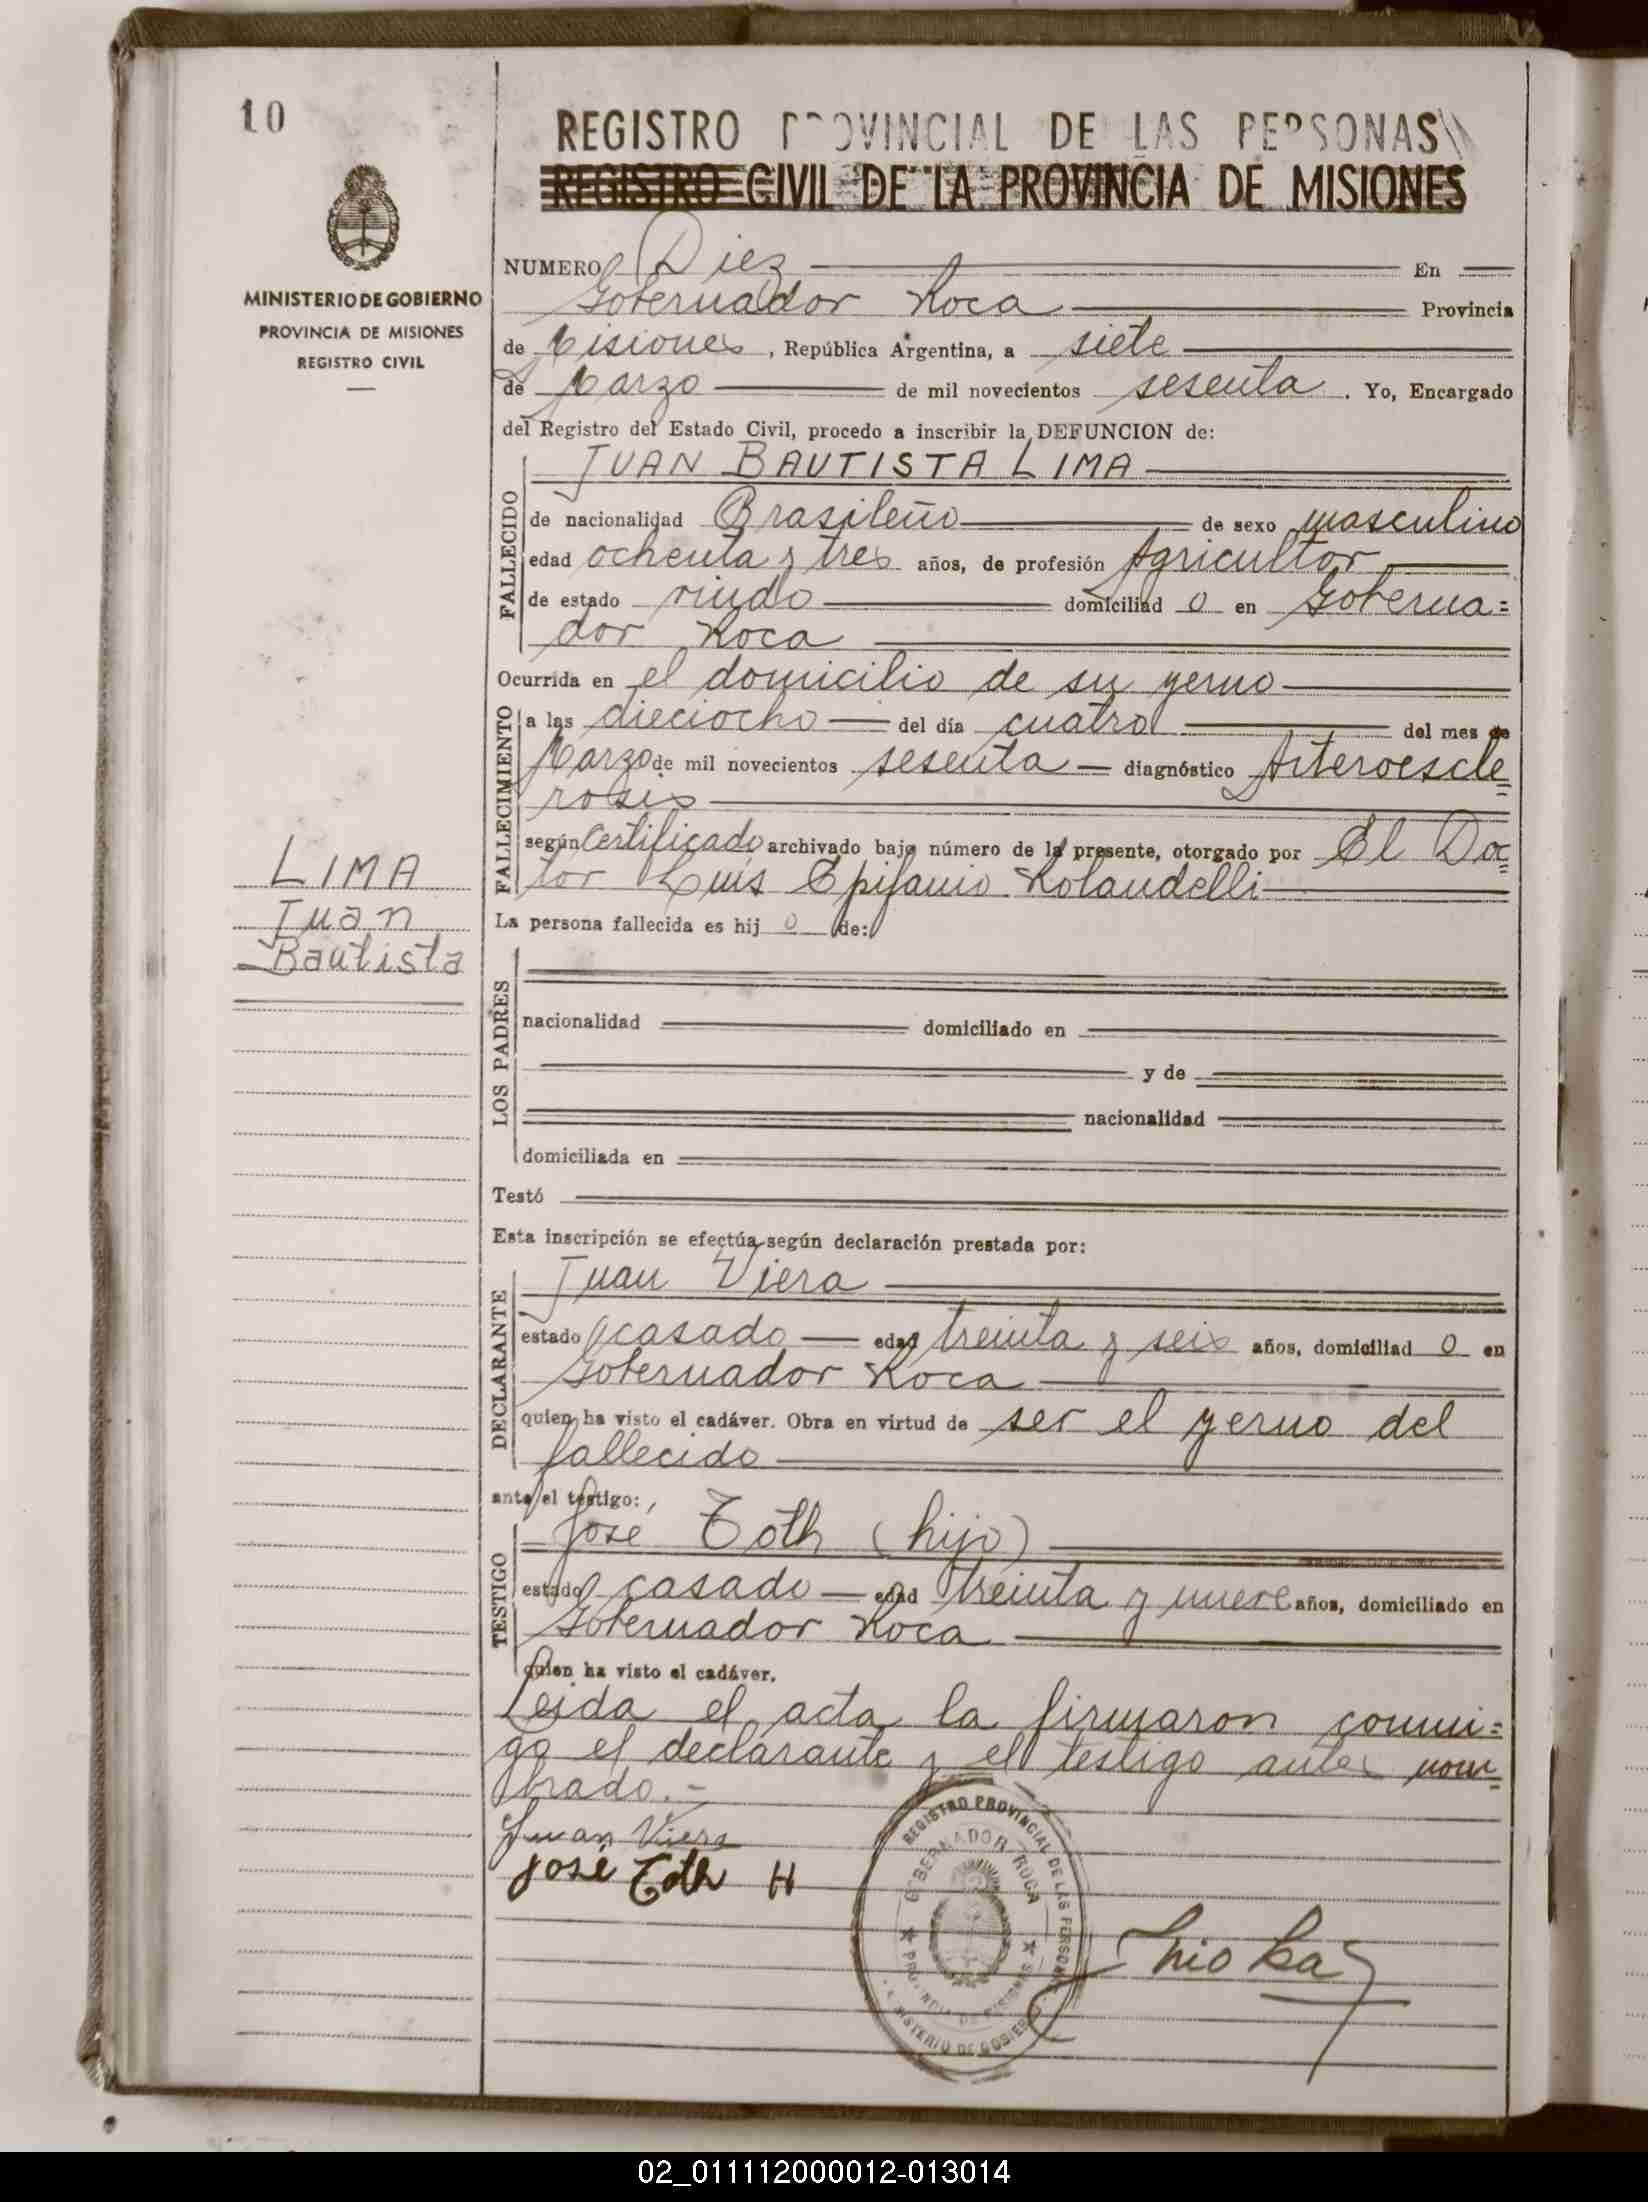 10
REGISTRO PROVINCIAL DE LAS PERSONAS
REGISTRO CIVIL DE LA PROVINCIA DE MISIONES
MINISTERIO DE GOBIERNO
PROVINCIA DE MISIONES
REGISTRO CIVIL
NUMERO Diez En
Gobernador Roca Provincia
de Misiones, República Argentina, a siete
de Marzo de mil novecientos sesenta. Yo, Encargado
del Registro del Estado Civil, procedo a inscribir la DEFUNCION de:
JUAN BAUTISTA LIMA
FALLECIDO
de nacionalidad Brasileño de sexo masculino
edad ochenta y tres años, de profesión Agricultor
de estado viudo domiciliad o en Goberna=
dor Roca
Ocurrida en el domicilio de su yerno
FALLECIMIENTO
a las dieciocho del día cuatro del mes de
Marzo de mil novecientos sesenta diagnóstico Arteroescle
rosis
según Certificado archivado bajo número de la presente, otorgado por El Doc=
tor Luís Epifanio Rolandelli
LIMA
Juan
Bautista
La persona fallecida es hij o de:
LOS PADRES
nacionalidad domiciliado en
y de
nacionalidad
domiciliada en
Testó
Esta inscripción se efectúa según declaración prestada por:
DECLARANTE
Juan Viera
estado casado edad treinta y seis años, domiciliad o en
Gobernador Roca
quien ha visto el cadáver. Obra en virtud de ser el yerno del
fallecido
ante el testigo:
TESTIGO
José Toth (hijo)
estado casado edad treinta y nueve años, domiciliado en
Gobernador Roca
quien ha visto el cadáver.
Leida el acta la firmaron conmi=
go el declarante y el testigo antes nom=
brado.-
Juan Viera
José Toth H
REGISTRO PROVINCIAL DE LAS PERSONAS
GOBERNADOR ROCA
PROVINCIA DE MISIONES
MINISTERIO DE GOBIERNO
02_011112000012-013014